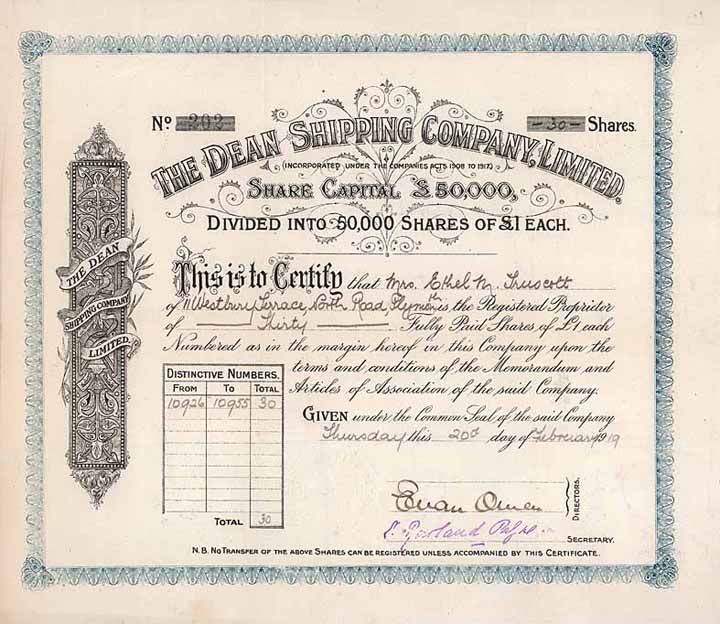 No 202 -30- Shares.
THE DEAN SHIPPING COMPANY, LIMITED.
(INCORPORATED UNDER THE COMPANIES ACTS 1908 TO 1917.)
SHARE CAPITAL £50,000,
DIVIDED INTO 50,000 SHARES OF £1 EACH.
THE DEAN
SHIPPING COMPANY
LIMITED.
This is to Certify that Mrs. Ethel M. Truscott
of 11 Westbury Terrace, North Road, Plymouth is the Registered Proprietor
of Thirty Fully Paid Shares of £1 each
Numbered as in the margin hereof in this Company upon the
terms and conditions of the Memorandum and
Articles of Association of the said Company.
GIVEN under the Common Seal of the said Company
Thursday this 20th day of February 1919
DISTINCTIVE NUMBERS.
FROM TO TOTAL
10926 10955 30
TOTAL 30
Evan Owen
DIRECTORS.
E. Rowland
SECRETARY.
N.B. NO TRANSFER OF THE ABOVE SHARES CAN BE REGISTERED UNLESS ACCOMPANIED BY THIS CERTIFICATE.